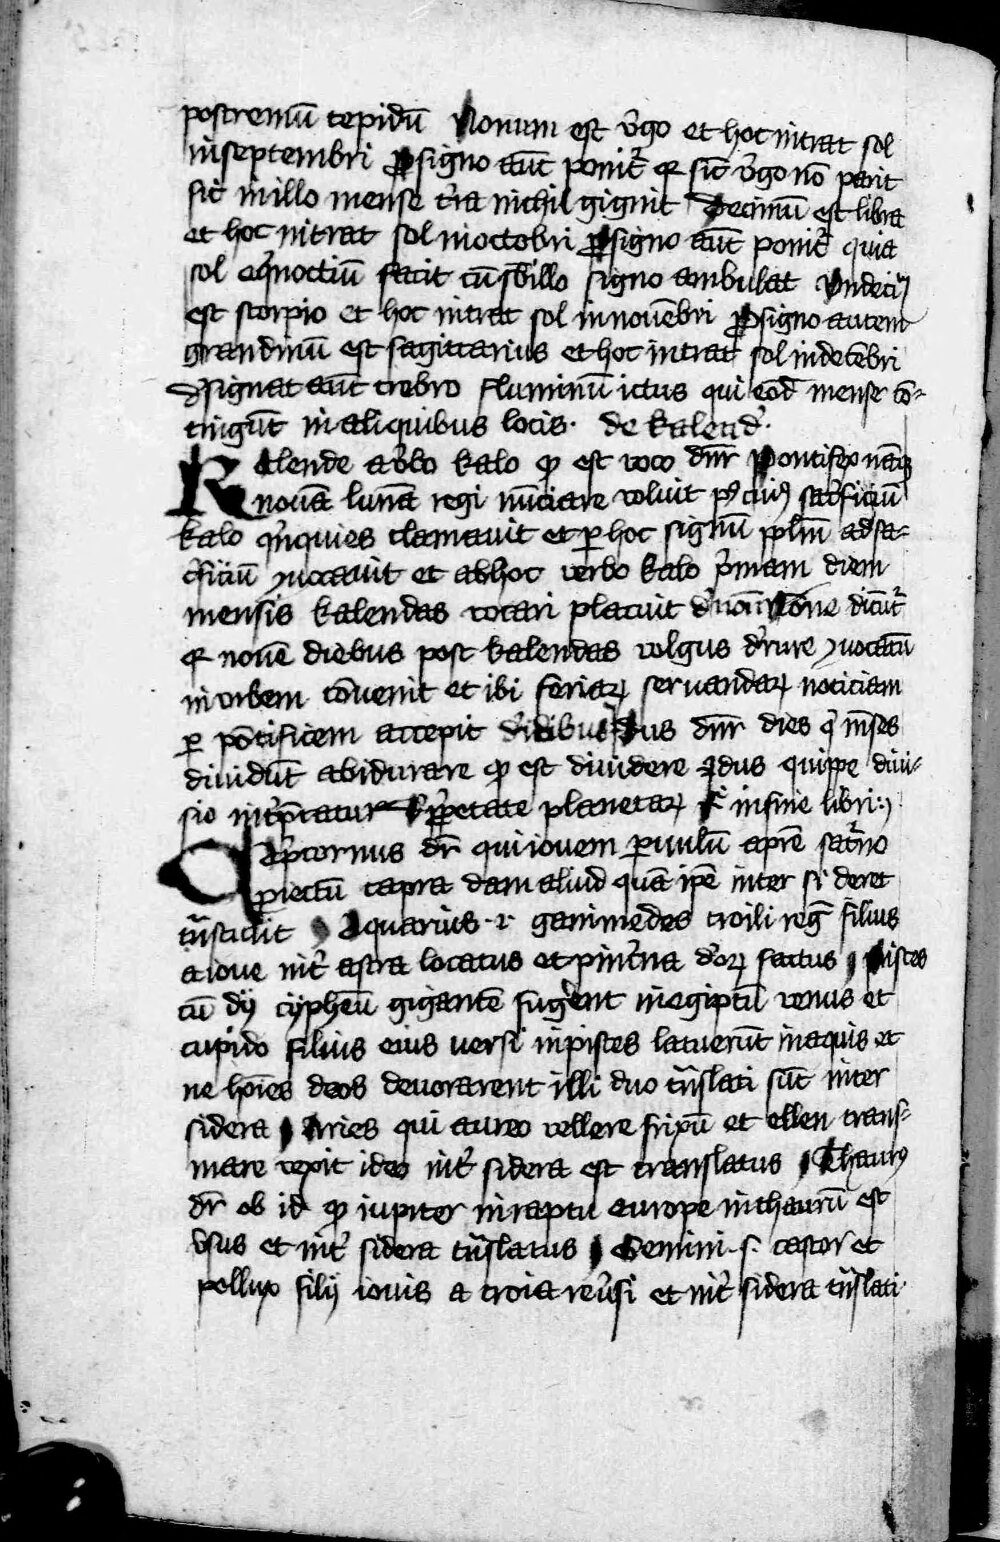 postremū tepidū Nonum est v̓go et hoc intrat sol
in septembri Pro signo aūt ponit᷑ q sic̄ v̓go nō parit
sic̄ in illo mense t̓ra nichil gignit Decimū est libra
et hoc intrat sol in octobri Pro signo aūt ponit᷑ quia
sol eq̓noctiū facit cū sb̓ illo signo ambulat Undeciꝰ
est scorpio et hoc intrat sol in nouēbri Pro signo autem
grandinū est sagittarius et hoc intrat sol in decēbri
d̓signat aūt crebro fluminū ictus qui eod̄ mense cō-
tingūt in aliquibus locis. de kalend̓.
Kalende a v̓bo kalo qđ est voco dn̄r Pontifex nāqꝫ
nouā lunā regi nūciare voluit pꝰ cuiꝰ sac̓ficiū
kalo q̓nquies clamauit et ꝑ hoc signū ppl̄m ad sa-
c̓ficiū ꝯuocauit et ab hoc verbo kalo p̓mam diem
mensis kalendas vocari placuit d̓ noīs None dicūt᷑
q nouē diebus post kalendas volgus d̓ rure ꝯuocatū
in urbem cōuenit et ibi feriaꝝ seruandaꝝ noticiam
ꝑ pōtificem accepit d̓ idibus Idus dn̄r dies q̓ mēses
diuidūt ab idurare qđ est diuidere Idus quippe diui-
sio int̓p̄tatur de ꝓp̓etate planetaꝝ in fine libri:
Cap̓cornus dr̄ qui iouem ꝑuulū a pr̄e sat̓no
ꝓiectū capra dam aluid quā ip̄e inter si deret
trāstulit Aquarius .i. ganimedes troili reḡ filius
a ioue int̓ astra locatus et pint̓na d̓oꝝ factus Pisces
cū dij cypheū gigantē fuger̄ent in egiptū venus et
cupido filius eius uersi in pisces latuerūt in aquis et
ne hoīes deos deuorarent illi duo trāslati sūt inter
sidera Aries qui aureo vellere frixū et ellen trans-
mare vexit ideo int̓ sidera est translatus Thaurꝰ
dr̄ ob id qđ iupiter in raptu europe in thaurū est
v̓sus et int̓ sidera trāslatus Gemini .s. castor et
pollux filij iouis a troia reu̓si et int̓ sidera trāslati.